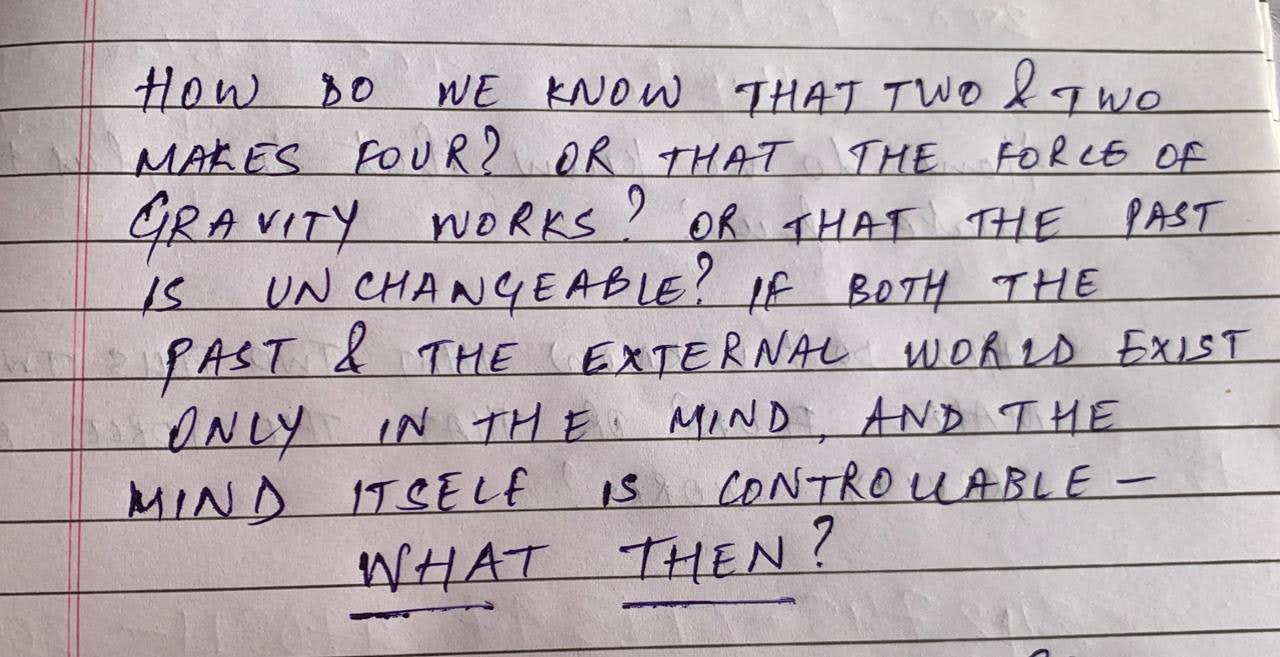 HOW DO WE KNOW THAT TWO & TWO
MAKES FOUR? OR THAT THE FORCE OF
GRAVITY WORKS? OR THAT THE PAST
IS UNCHANGEABLE? IF BOTH THE
PAST & THE EXTERNAL WORLD EXIST
ONLY IN THE MIND, AND THE
MIND ITSELF IS CONTROLLABLE –
WHAT THEN?